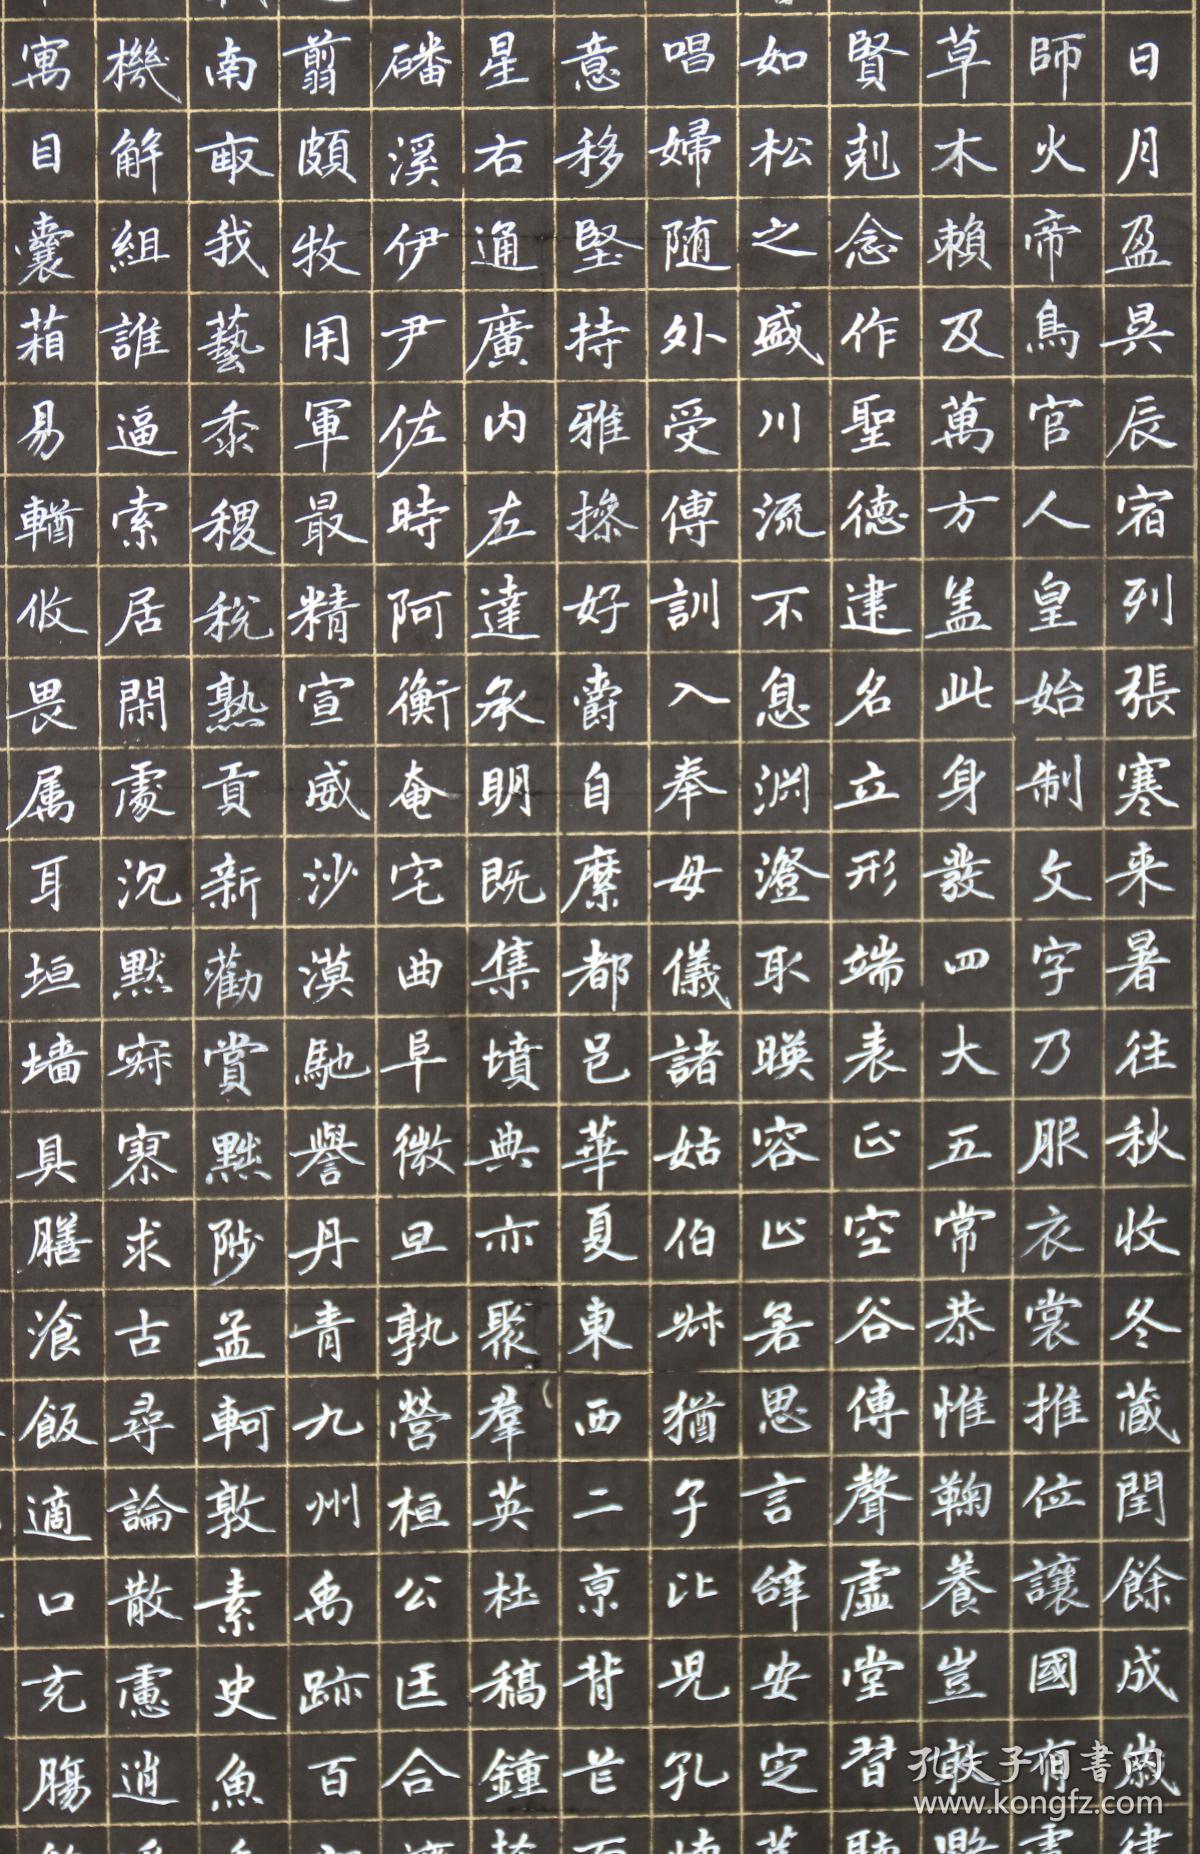 日月盈昃辰宿列張寒来暑往秋收冬蔵閏餘成歲律
師火帝鳥官人皇始制文字乃服衣裳推位讓國有虞
草木賴及萬方盖此身發四大五常恭惟鞠養豈敢毀
賢剋念作聖德建名立形端表正空谷傳聲虛堂習聽
如松之盛川流不息淵澄取暎容止若思言辞安定
唱婦随外受傅訓入奉母儀諸姑伯叔猶子比兒孔懷
意移堅持雅操好爵自縻都邑華夏東西二京背芒面
星右通廣内左達承明既集墳典亦聚羣英杜稿鍾
磻溪伊尹佐時阿衡奄宅曲阜微旦孰營桓公匡合濟
翦頗牧用軍最精宣威沙漠馳譽丹青九州禹跡百
南畝我藝黍稷稅熟貢新勸賞黜陟孟軻敦素史魚
機解組誰逼索居閑處沉默寂寥求古尋論散慮逍
寓目囊箱易輶攸畏属耳垣墙具膳飡飯適口充腸
孔夫子旧書网
www.kongfz.com